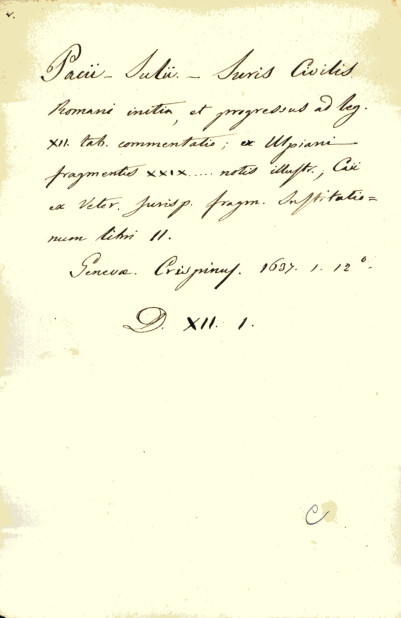 Pacii - Julii. - Juris Civilis
Romani initia, et progressus ad leg.
XII. tab. commentatio; ex Ulpiani
fragmentis XXIX..... notis illustr., Caii
ex Veter. Jurisp. fragm. Institutio=
num libri II.
Genevæ. Crispinus. 1637. 1. 12°.
D. XII. 1.
C